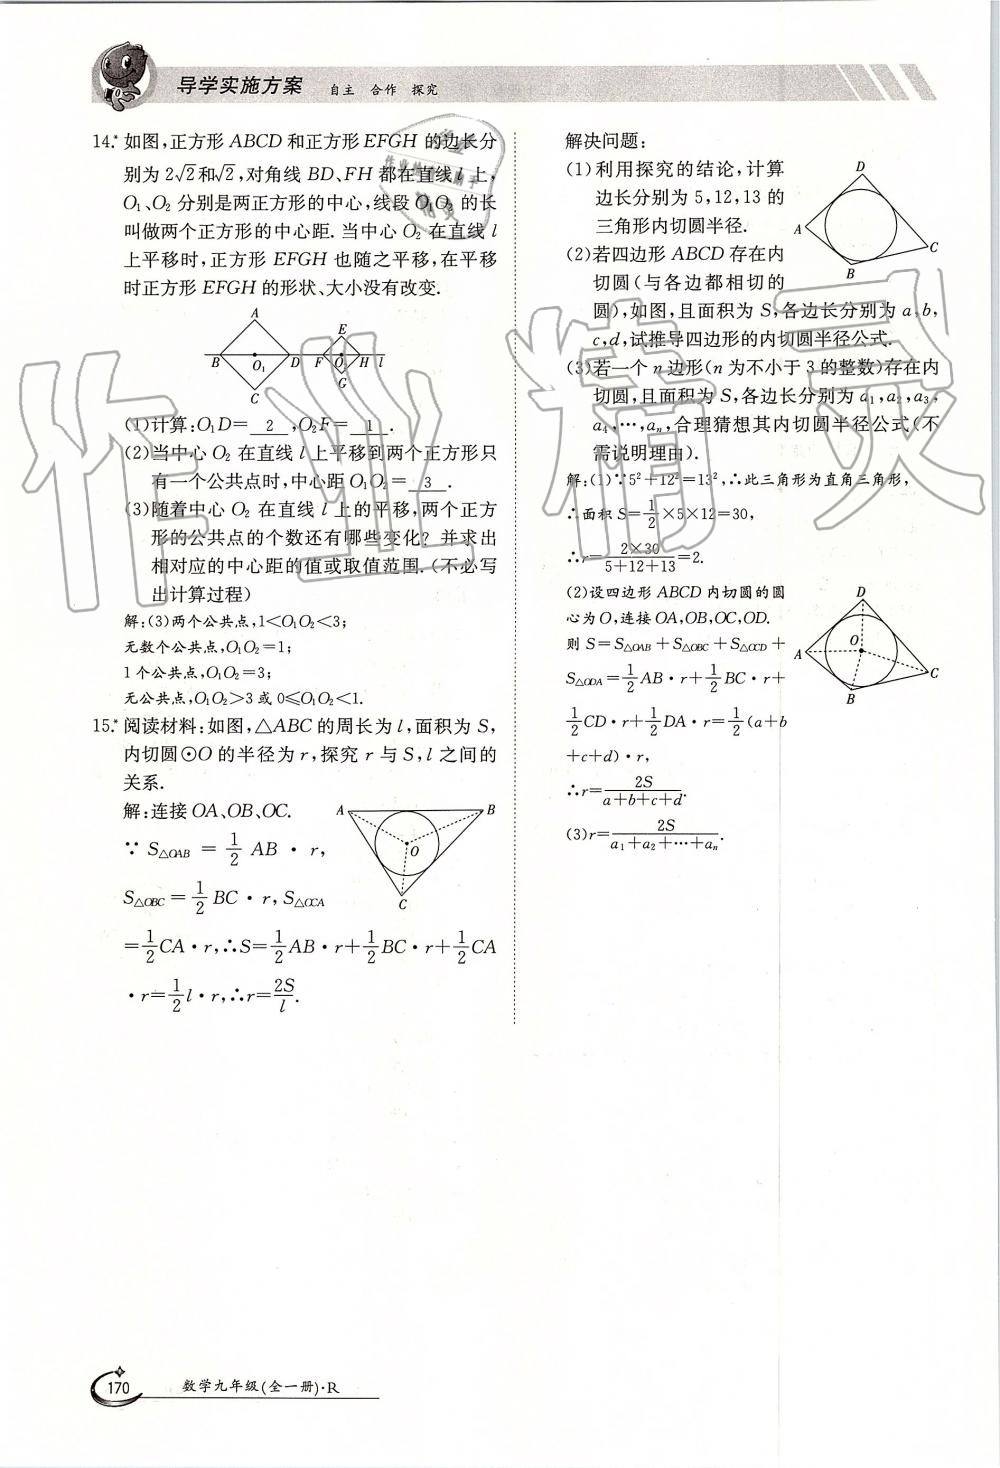 导学实施方案 自主 合作 探究
14.* 如图,正方形 ABCD 和正方形 EFGH 的边长分
别为 2√2和√2,对角线 BD、FH 都在直线 l 上,
O₁、O₂ 分别是两正方形的中心,线段 O₁O₂ 的长
叫做两个正方形的中心距. 当中心 O₂ 在直线 l
上平移时,正方形 EFGH 也随之平移,在平移
时正方形 EFGH 的形状、大小没有改变.
A
E
B O₁ D F O₂ H l
G
C
(1)计算:O₁D= 2 ,O₂F= 1 .
(2)当中心 O₂ 在直线 l 上平移到两个正方形只
有一个公共点时,中心距 O₁O₂= 3 .
(3)随着中心 O₂ 在直线 l 上的平移,两个正方
形的公共点的个数还有哪些变化? 并求出
相对应的中心距的值或取值范围.(不必写
出计算过程)
解:(3)两个公共点,1<O₁O₂<3;
无数个公共点,O₁O₂=1;
1个公共点,O₁O₂=3;
无公共点,O₁O₂>3 或 0≤O₁O₂<1.
15.* 阅读材料:如图,△ABC 的周长为 l,面积为 S,
内切圆⊙O 的半径为 r,探究 r 与 S,l 之间的
关系.
解:连接 OA、OB、OC.
∵ S△OAB = 1/2 AB · r,
S△OBC = 1/2 BC · r, S△OCA
= 1/2 CA · r,∴S= 1/2 AB · r+ 1/2 BC · r+ 1/2 CA
· r= 1/2 l · r,∴r= 2S/l.
A B
O
C
解决问题:
(1)利用探究的结论,计算
边长分别为 5,12,13 的
三角形内切圆半径.
(2)若四边形 ABCD 存在内
切圆(与各边都相切的
圆),如图,且面积为 S,各边长分别为 a,b,
c,d,试推导四边形的内切圆半径公式.
(3)若一个 n 边形(n 为不小于 3 的整数)存在内
切圆,且面积为 S,各边长分别为 a₁,a₂,a₃,
a₄,…,aₙ,合理猜想其内切圆半径公式(不
需说明理由).
D
A
C
B
解:(1)∵5²+12²=13²,∴此三角形为直角三角形,
∴面积 S= 1/2 ×5×12=30,
∴r= 2×30/5+12+13 =2.
(2)设四边形 ABCD 内切圆的圆
心为 O,连接 OA,OB,OC,OD.
则 S=S△OAB+S△OBC+S△OCD+
S△ODA= 1/2 AB · r+ 1/2 BC · r+
1/2 CD · r+ 1/2 DA · r= 1/2 (a+b
+c+d) · r,
∴r= 2S/a+b+c+d.
(3)r= 2S/a₁+a₂+…+aₙ.
D
O
A
C
B
170 数学九年级(全一册)·R
作业精灵